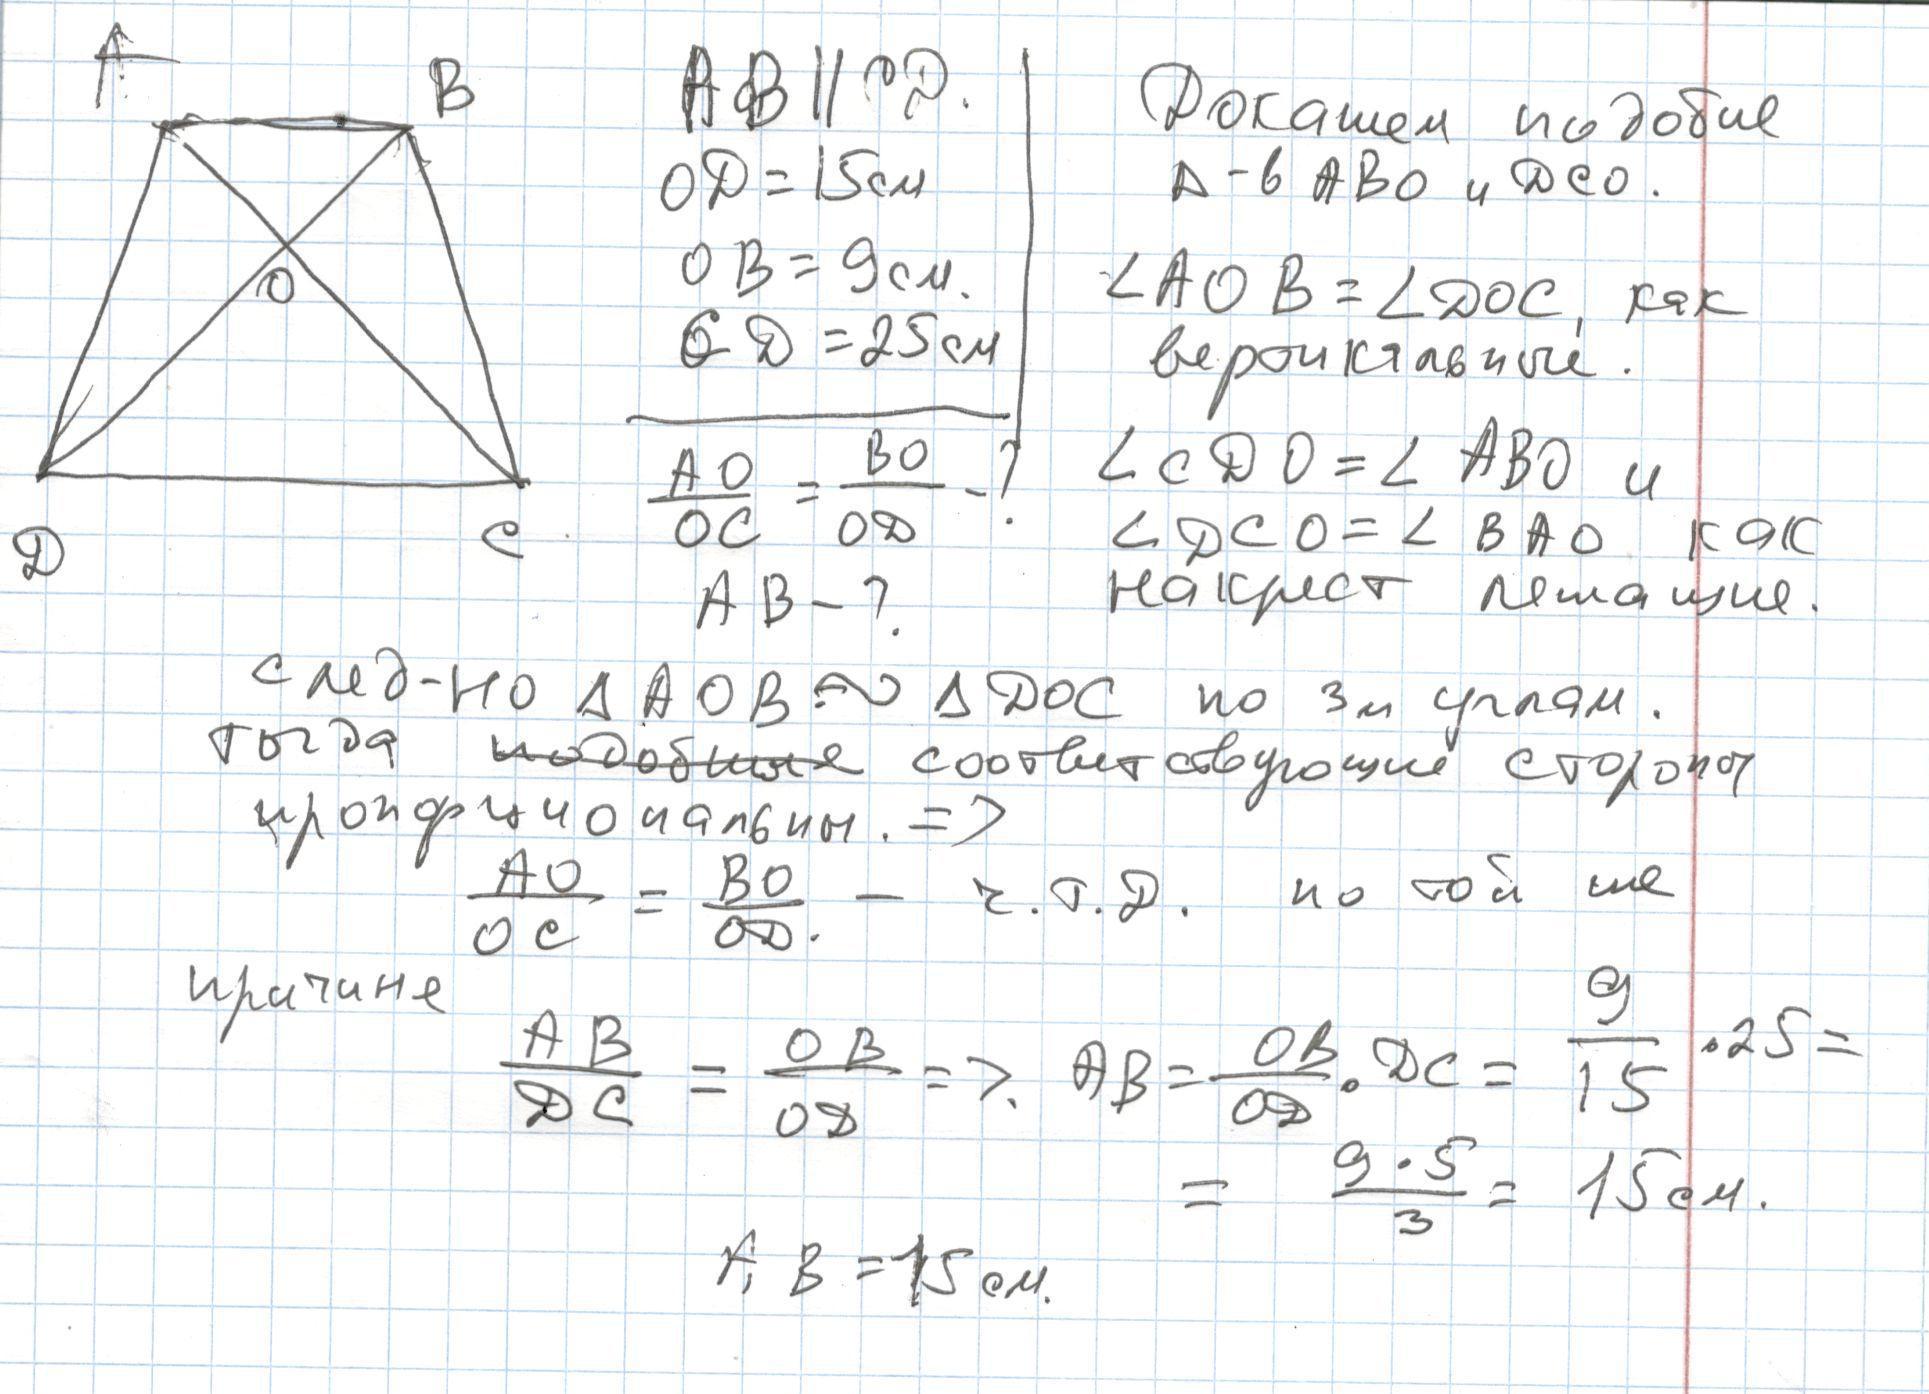 A
B
O
D
C
AB || CD.
OD = 15 см
OB = 9 см.
CD = 25 см
AO/OC = BO/OD - ?
AB - ?
Докажем подобие
Δ-в ABO и DCO.
∠AOB = ∠DOC, как
вертикальные.
∠CDO = ∠ABO и
∠DCO = ∠BAO как
накрест лежащие.
след-но ΔAOB ~ ΔDOC по 3м углам.
тогда подобные соответствующие стороны
пропорциональны. =>
AO/OC = BO/OD. — ч.т.д. по той же
причине
AB/DC = OB/OD => AB = OB/OD · DC = 9/15 · 25 =
= 9·5/3 = 15 см.
AB = 15 см.